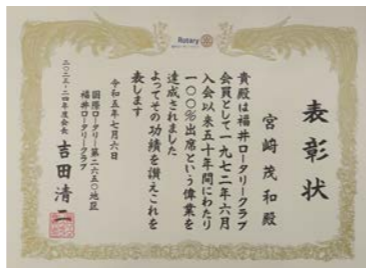 Rotary
表彰状
宮﨑茂和殿
貴殿は福井ロータリークラブ
会員として一九七二年六月
入会以来五十年間にわたり
一〇〇%出席という偉業を
達成されました
よってその功績を讃えこれを
表します
令和五年七月六日
国際ロータリー第二六五〇地区
福井ロータリークラブ
二〇二三-二四年度会長 吉田清二